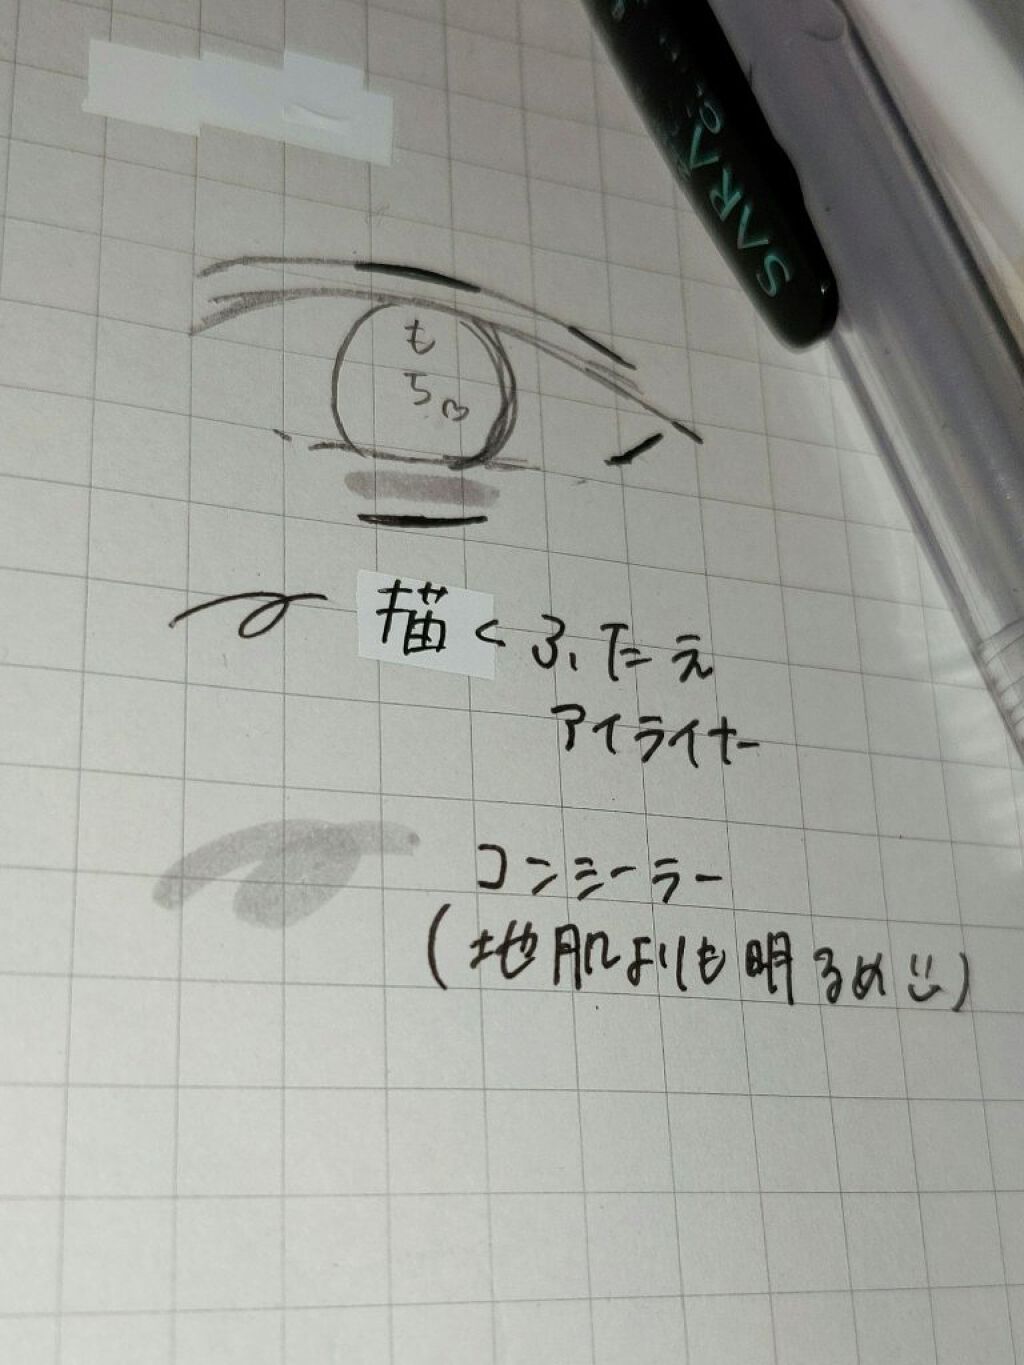 SARASA
も
ち♡
描くふたえ
アイライナー
コンシーラー
(地肌よりも明るめ)